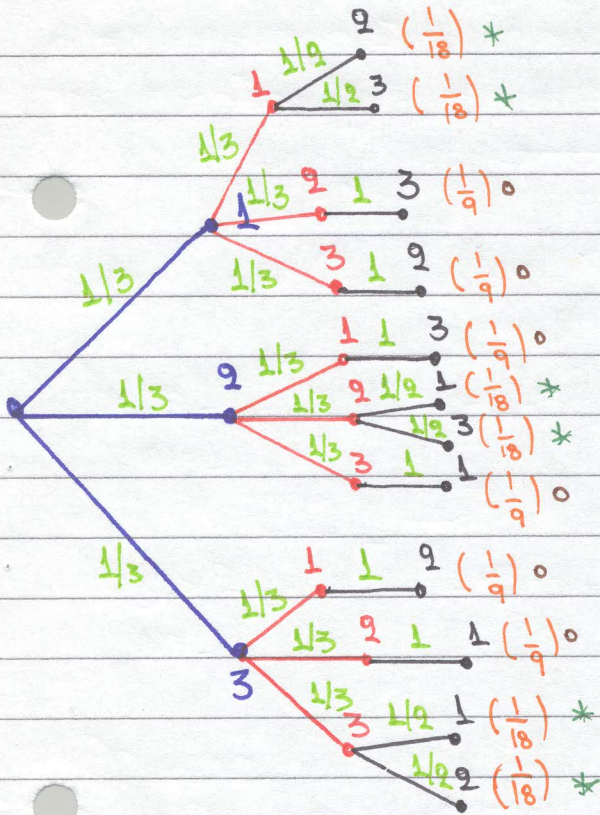 1/2 2 (1/18) *
1 1/2 3 (1/18) *
1/3
1/3 2 1 3 (1/9) o
1
1/3 3 1 2 (1/9) o
1/3
1/3 1 1 3 (1/9) o
1/3 2 1/3 2 1/2 1 (1/18) *
1/2 3 (1/18) *
1/3 3 1 1 (1/9) o
1/3
1/3 1 1 2 (1/9) o
3 1/3 2 1 1 (1/9) o
1/3 3 1/2 1 (1/18) *
1/2 2 (1/18) *